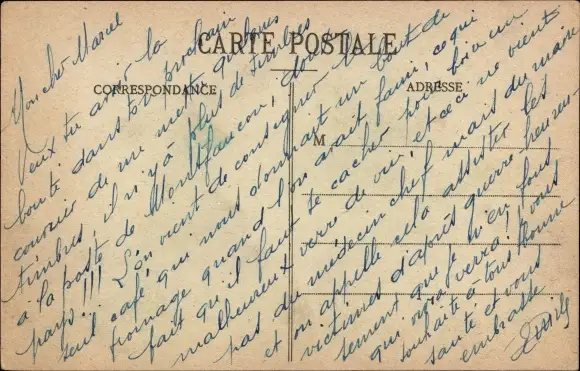 CARTE POSTALE
CORRESPONDANCE
ADRESSE
M
Mon cher Marcel
Veux tu avoir la
bonté dans ton prochain
courier de me mettre quelques
timbres, il n'y a plus de timbres
a la poste de Montfaucon,
pays!!! L'on vient de consigner le
seul café qui nous donnait un bout de
fromage quand l'on avait faim, ce qui
fait qu'il faut se cacher pour boire un
malheureux verre de vin, et ceci ne vient
pas du médecin chef mais du maire
et on appelle cela assister les
victimes d'après guerre, heureu-
sement que je m'en fous
qui vivra verra, je vous
souhaite à tous bonne
santé et vous
embrasse
Emile